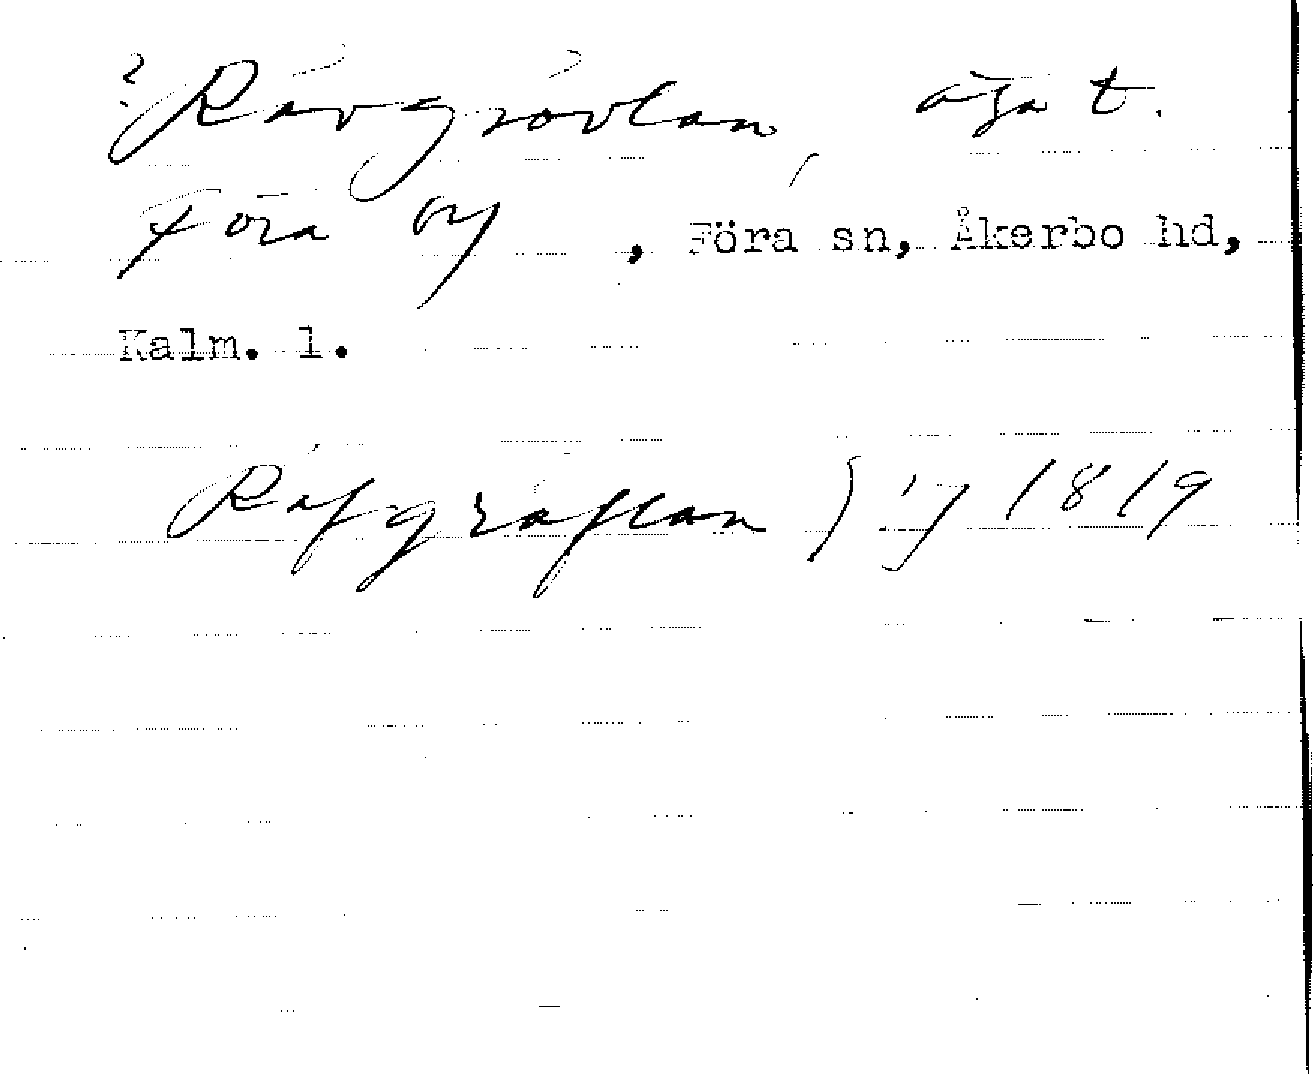 ? Rävgrävlan, äga t.
Föra by, Föra sn, Åkerbo hd,
Kalm. l.
Räfgräflan 1819